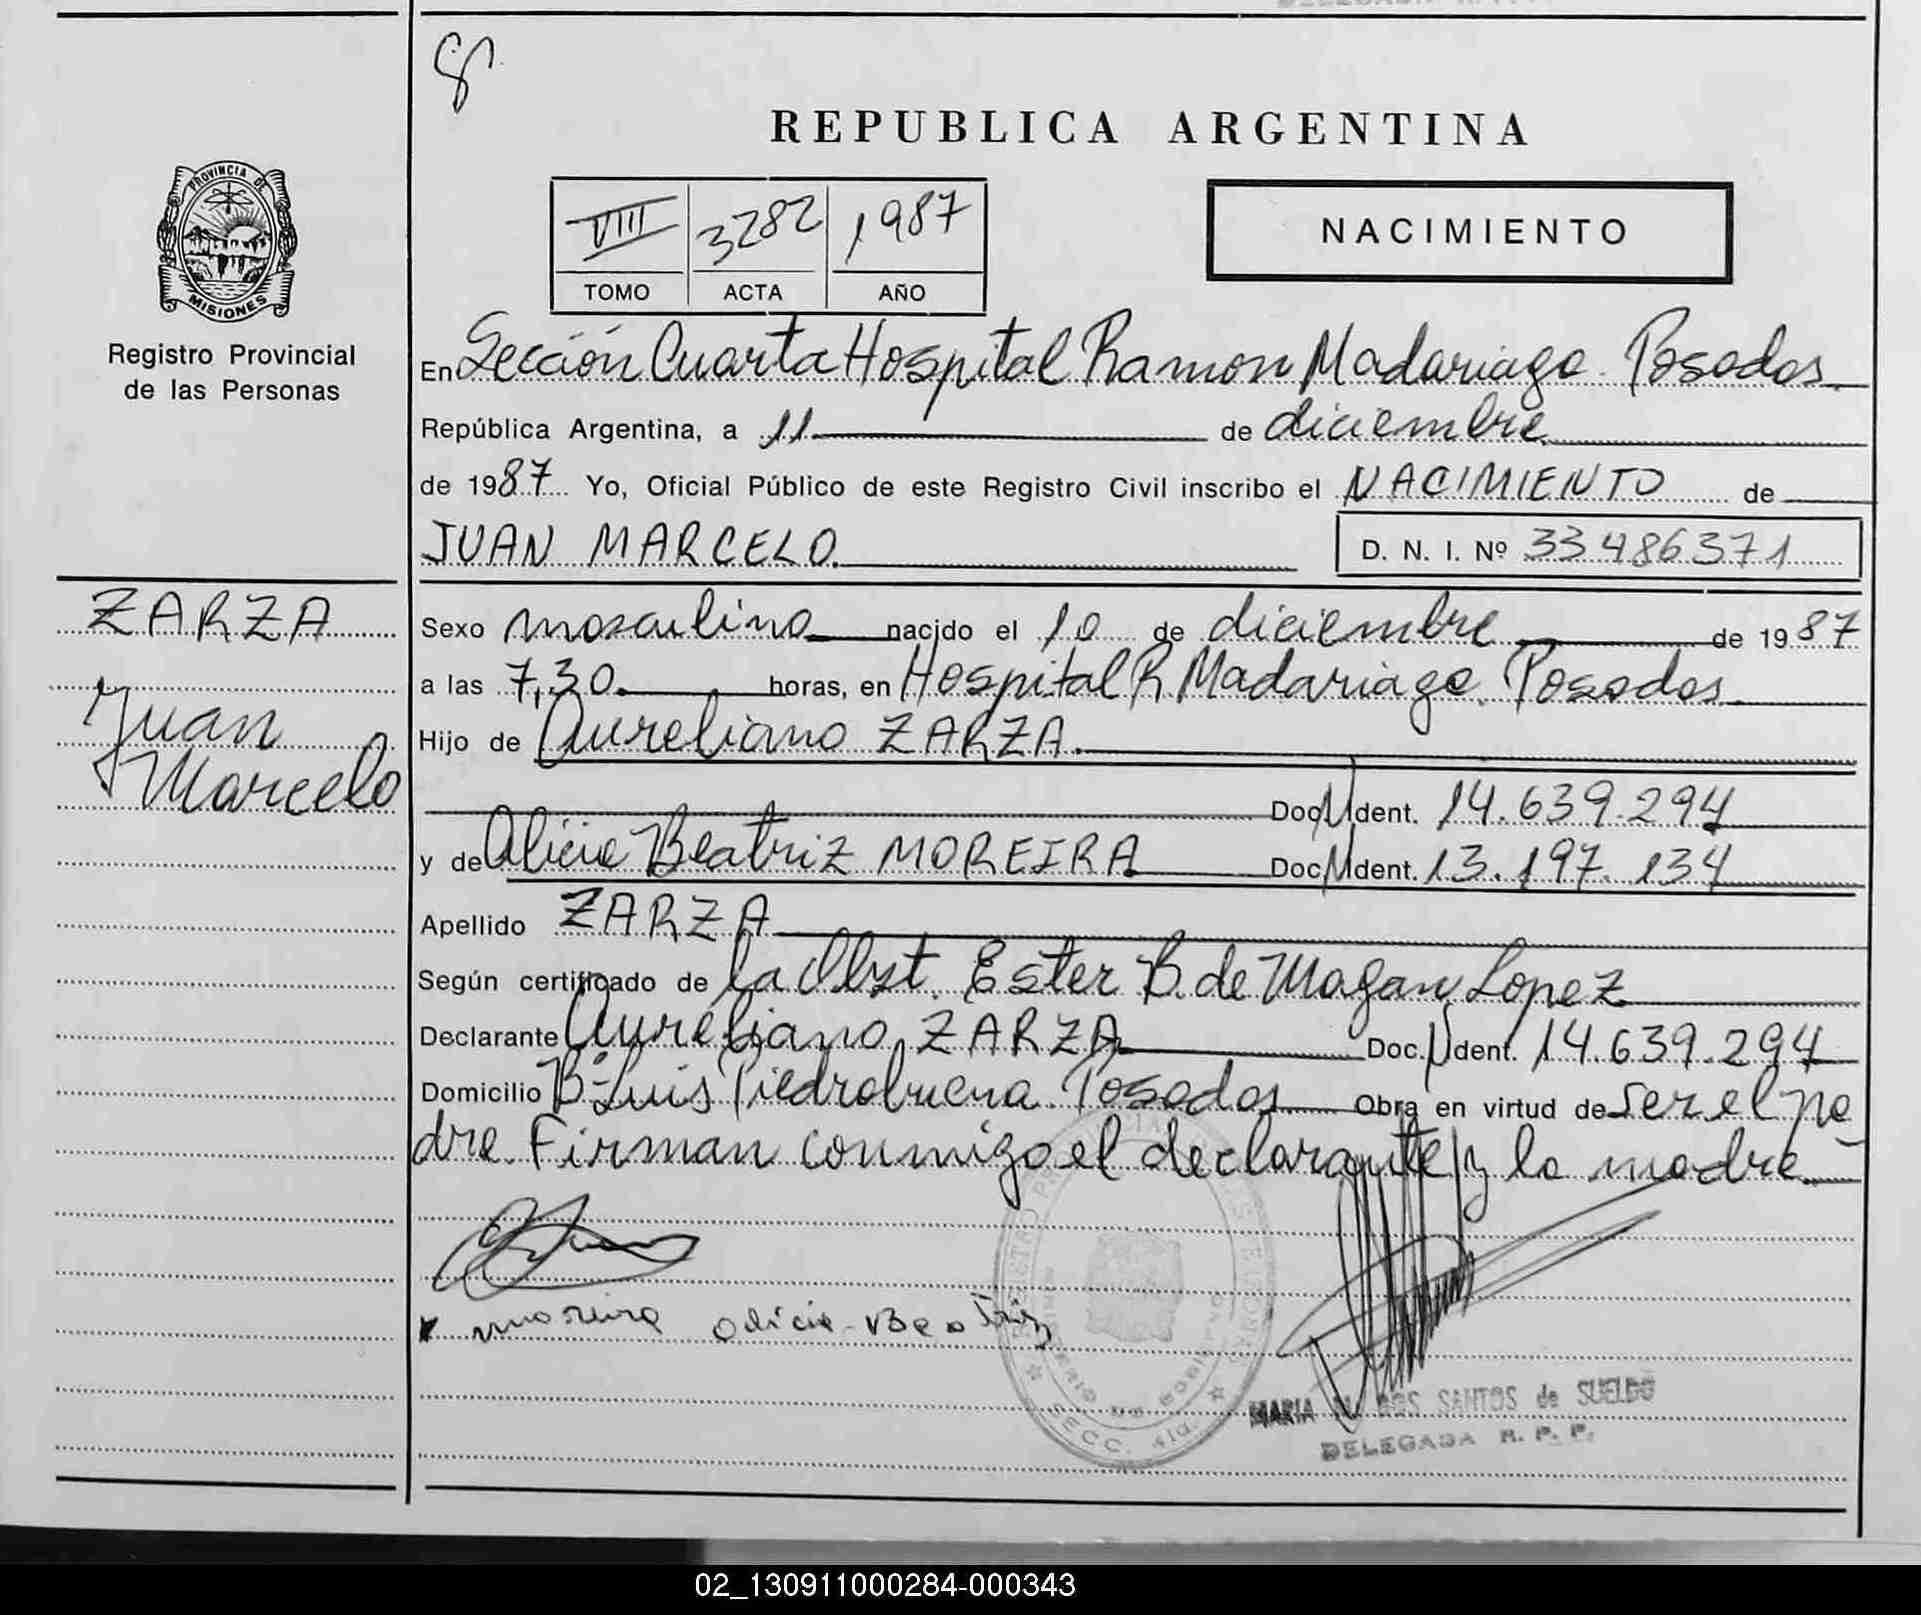 REPUBLICA ARGENTINA
PROVINCIA DE
MISIONES
Registro Provincial
de las Personas
VIII 3282 1987
TOMO ACTA AÑO
NACIMIENTO
En Sección Cuarta Hospital Ramon Madariaga Posadas
República Argentina, a 11 de diciembre
de 1987 Yo, Oficial Público de este Registro Civil inscribo el NACIMIENTO de
JUAN MARCELO
D. N. I. Nº 33486371
ZARZA
Juan
Marcelo
Sexo masculino nacido el 10 de diciembre de 1987
a las 7,30 horas, en Hospital R. Madariaga Posadas
Hijo de Aureliano ZARZA
Doc. N Ident. 14.639.294
y de Alicia Beatriz MOREIRA Doc. N Ident. 13.197.134
Apellido ZARZA
Según certificado de la Obst. Ester B. de Magan Lopez
Declarante Aureliano ZARZA Doc. N Ident. 14.639.294
Domicilio Bº Luis Piedrabuena Posadas Obra en virtud de ser el pa
dre. Firman conmigo el declarante y la madre
moreira alicia Beatriz
SECC. 4ta.
MARIA DOS SANTOS de SUELDO
DELEGADA R. P. P.
02_130911000284-000343